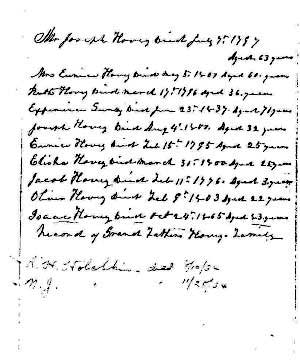 Mr Joseph Hovey Died July 7th 1797
Aged 63 years
Mrs Eunice Hovey Died Aug 5th 1807 Aged 60 years
Ruth Hovey Died March 17th 1796 Aged 36 years
Experience Died Jan 23d 1837 Aged 71 years
Joseph Hovey Died Aug 4th 1800 Aged 32 years
Eunice Hovey Died Feb 15th 1795 Aged 25 years
Elisha Hovey Died March 31st 1800 Aged 25 years
Jacob Hovey Died Feb 11th 1776 Aged 3 years
Oliver Hovey Died Feb 8th 1803 Aged 22 years
Isaac Hovey Died Oct 24th 1865 Aged 83 years
Record of Grand Fathers Hovey Family
H. Hotchkin died
N. J. " " 11/25/34